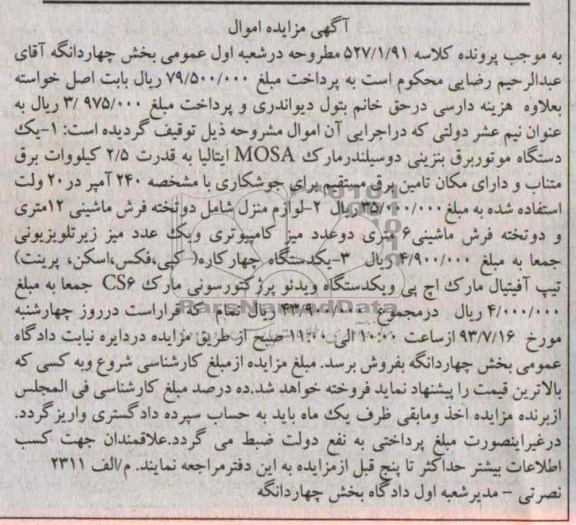 آگهی مزایده اموال
به موجب پرونده کلاسه ۵۲۷/۱/۹۱ مطروحه درشعبه اول عمومی بخش چهاردانگه آقای
عبدالرحیم رضایی محکوم است به پرداخت مبلغ ۷۹/۵۰۰/۰۰۰ ریال بابت اصل خواسته
بعلاوه هزینه دارسی درحق خانم بتول دیواندری و پرداخت مبلغ ۳/۹۷۵/۰۰۰ ریال به
عنوان نیم عشر دولتی که دراجرایی آن اموال مشروحه ذیل توقیف گردیده است: ۱-یک
دستگاه موتوربرق بنزینی دوسیلندرمارک MOSA ایتالیا به قدرت ۲/۵ کیلووات برق
متناب و دارای مکان تامین برق مستقیم برای جوشکاری با مشخصه ۲۴۰ آمپر در۲۰ ولت
استفاده شده به مبلغ ۳۵/۰۰۰/۰۰۰ ریال ۲-لوازم منزل شامل دوتخته فرش ماشینی ۱۲متری
و دوتخته فرش ماشینی۶ متری دوعدد میز کامپیوتری ویک عدد میز زیرتلویزیونی
جمعا به مبلغ ۴/۹۰۰/۰۰۰ ریال ۳-یکدستگاه چهارکاره( کپی،فکس،اسکن، پرینت)
تیپ آفیتیال مارک اچ پی ویکدستگاه ویدئو پرژکتورسونی مارک CS۶ جمعا به مبلغ
۴/۰۰۰/۰۰۰ ریال درمجموع ۴۳/۹۰۰/۰۰۰ ریال تمام که قراراست درروز چهارشنبه
مورخ ۹۳/۷/۱۶ ازساعت ۱۰:۰۰ الی ۱۱:۰۰ صبح از طریق مزایده دردایره نیابت دادگاه
عمومی بخش چهاردانگه بفروش برسد. مبلغ مزایده ازمبلغ کارشناسی شروع وبه کسی که
بالاترین قیمت را پیشنهاد نماید فروخته خواهد شد.ده درصد مبلغ کارشناسی فی المجلس
ازبرنده مزایده اخذ ومابقی ظرف یک ماه باید به حساب سپرده دادگستری واریزگردد.
درغیراینصورت مبلغ پرداختی به نفع دولت ضبط می گردد.علاقمندان جهت کسب
اطلاعات بیشتر حداکثر تا پنج قبل ازمزایده به این دفترمراجعه نمایند. م/الف ۲۳۱۱
نصرتی - مدیرشعبه اول دادگاه بخش چهاردانگه
ParsNamadData